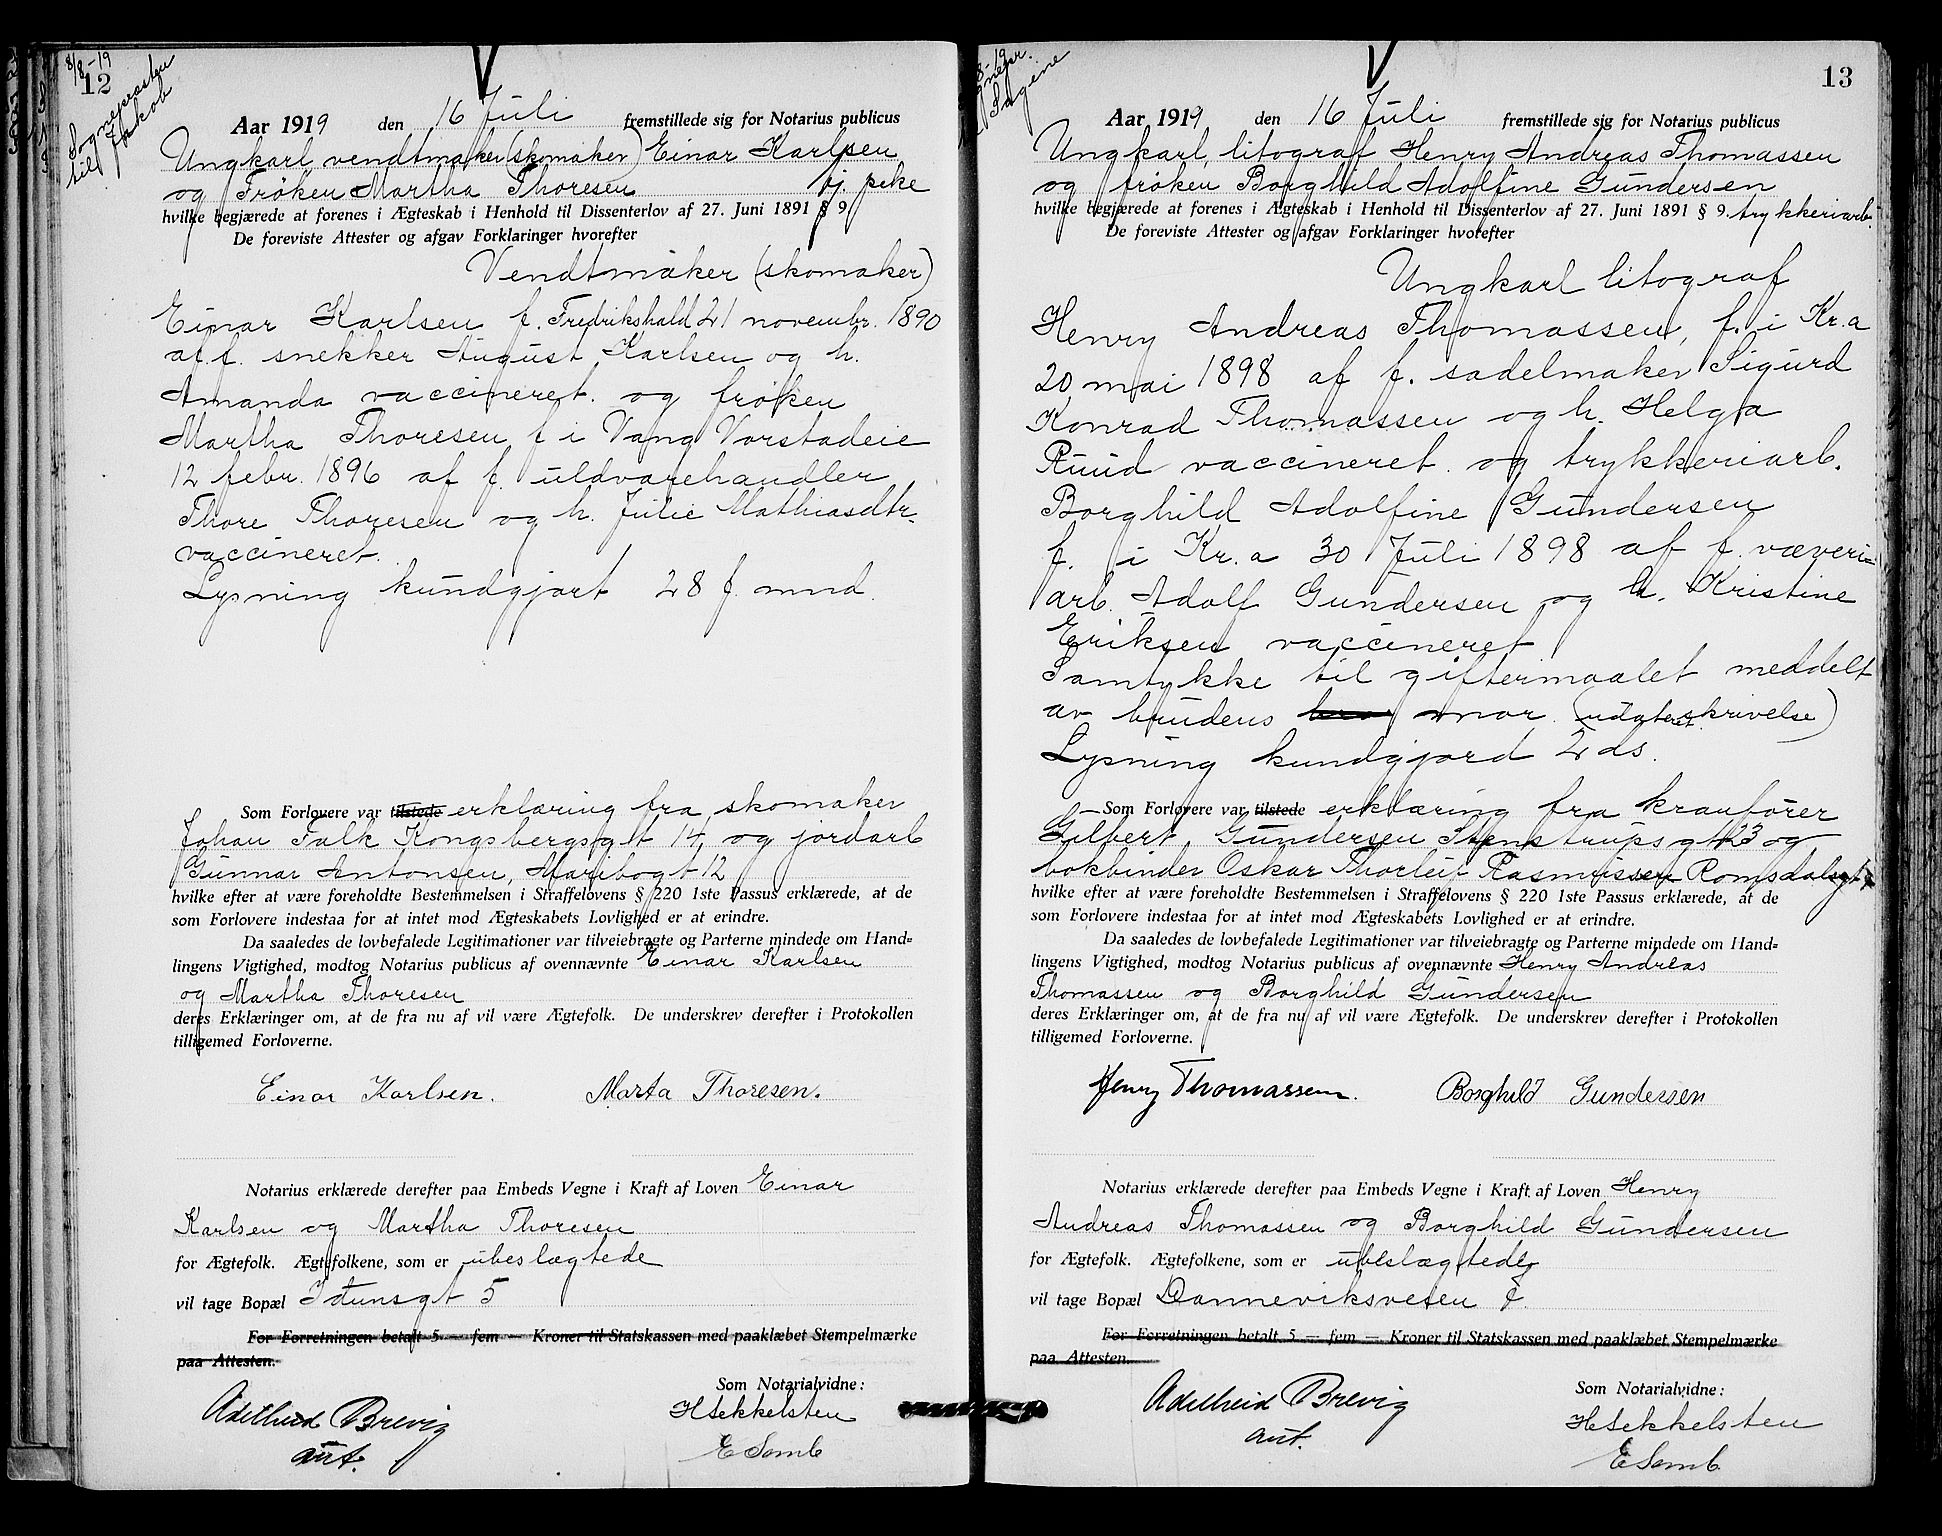 8/8-19
12
Sogneprosten
til Jakob
Aar 1919 den 16 Juli fremstillede sig for Notarius publicus
Ungkarl vendtmaker (skomaker) Einar Karlsen
og Frøken Martha Thoresen tj. peke
hvilke begjærede at forenes i Ægteskab i Henhold til Dissenterlov af 27. Juni 1891 § 9.
De foreviste Attester og afgav Forklaringer hvorefter
Vendtmaker (skomaker)
Einar Karlsen f. Fredrikshald 21 novembr. 1890
af f. snekker August Karlsen og h.
Amanda vaccineret. og frøken
Martha Thoresen f i Vang Vorstadeie
12 febr. 1896 af f. uldvarehandler
Thore Thoresen og h. Julie Mathiasdtr.
vaccineret.
Lysning kundgjort 28 f. mnd.
Som Forlovere var tilstede erklæring fra skomaker
Johan Falk Kongsbergsgt 14 og jordarb
Gunnar Antonsen, Maribogt 12
hvilke efter at være foreholdte Bestemmelsen i Straffelovens § 220 1ste Passus erklærede, at de
som Forlovere indestaa for at intet mod Ægteskabets Lovlighed er at erindre.
Da saaledes de lovbefalede Legitimationer var tilveiebragte og Parterne mindede om Hand-
lingens Vigtighed, modtog Notarius publicus af ovennævnte Einar Karlsen
og Martha Thoresen
deres Erklæringer om, at de fra nu af vil være Ægtefolk. De underskrev derefter i Protokollen
tilligemed Forloverne.
Einar Karlsen. Marta Thoresen.
Notarius erklærede derefter paa Embeds Vegne i Kraft af Loven Einar
Karlsen og Martha Thoresen
for Ægtefolk. Ægtefolkene, som er ubeslægtede
vil tage Bopæl Idunsgt 5
For Forretningen betalt 5 — fem — Kroner til Statskassen med paaklæbet Stempelmærke
paa Attesten.
Som Notarialvidne:
Adelheid Brevig
aut.
H Sekkelsten
E Somb
8-19
Sagene
13
Aar 1919 den 16 Juli fremstillede sig for Notarius publicus
Ungkarl, litograf Henry Andreas Thomassen
og frøken Borghild Adolfine Gundersen
hvilke begjærede at forenes i Ægteskab i Henhold til Dissenterlov af 27. Juni 1891 § 9. trykkeriarb.
De foreviste Attester og afgav Forklaringer hvorefter
Ungkarl litograf
Henry Andreas Thomassen, f. i Kr.a
20 mai 1898 af f. sadelmaker Sigurd
Konrad Thomassen og h. Helga
Ruud vaccineret. og trykkeriarb.
Borghild Adolfine Gundersen
f. i Kr.a 30 Juli 1898 af f. væveri-
arb. Adolf Gundersen og h. Kristine
Eriksen vaccineret
Samtykke til giftermaalet meddelt
av brudens mor. (udatert skrivelse)
Lysning kundgjord 2 ds.
Som Forlovere var tilstede erklæring fra kranfører
Gilbert Gundersen Stenstrupsgt 23 og
bokbinder Oskar Thorleif Rasmussen Romsdalsgt
hvilke efter at være foreholdte Bestemmelsen i Straffelovens § 220 1ste Passus erklærede, at de
som Forlovere indestaa for at intet mod Ægteskabets Lovlighed er at erindre.
Da saaledes de lovbefalede Legitimationer var tilveiebragte og Parterne mindede om Hand-
lingens Vigtighed, modtog Notarius publicus af ovennævnte Henry Andreas
Thomassen og Borghild Gundersen
deres Erklæringer om, at de fra nu af vil være Ægtefolk. De underskrev derefter i Protokollen
tilligemed Forloverne.
Henry Thomassen. Borghild Gundersen
Notarius erklærede derefter paa Embeds Vegne i Kraft af Loven Henry
Andreas Thomassen og Borghild Gundersen
for Ægtefolk. Ægtefolkene, som er ubeslægtede
vil tage Bopæl Danneviksveien
For Forretningen betalt 5 — fem — Kroner til Statskassen med paaklæbet Stempelmærke
paa Attesten.
Som Notarialvidne:
Adelheid Brevig
aut.
H Sekkelsten
E Somb